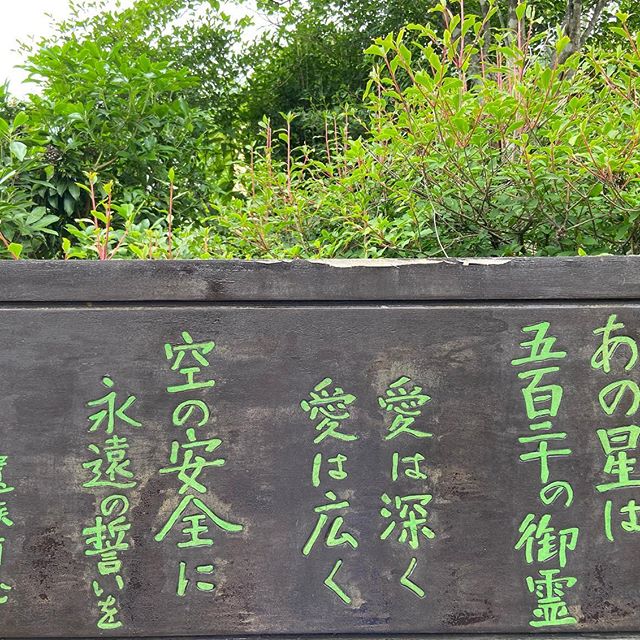 あの星は
五百二十の御霊
愛は深く
愛は広く
空の安全に
永遠の誓いを
遺族有志